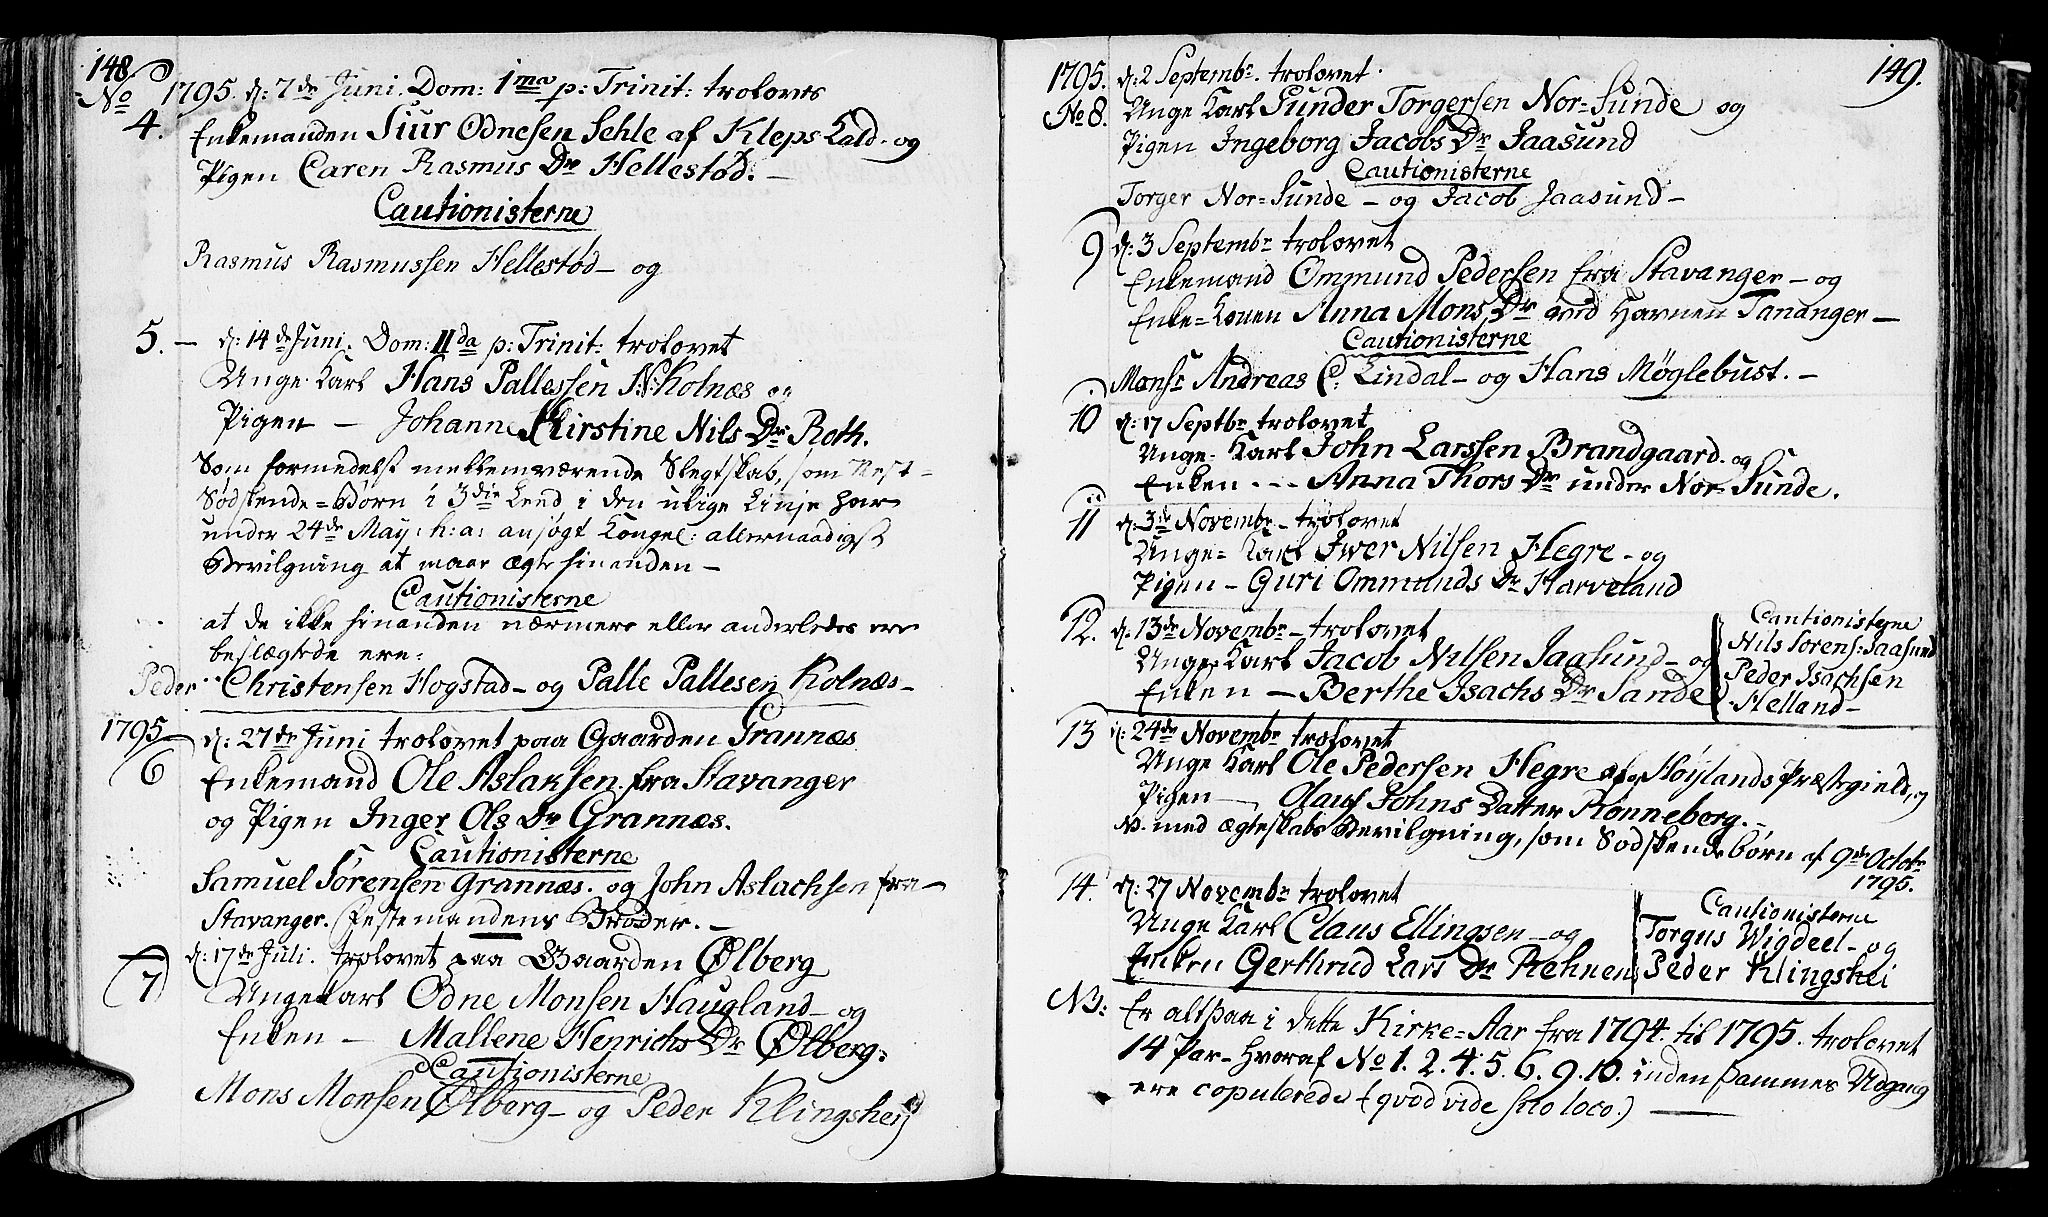 148
No 1795. d: 7de Juni. Dom: 1ma p: Trinit: troloves
4. Enkemanden Siur Odnesen Sehle af Kleps Kald. og
Pigen Caren Rasmus Dr Hellestød. —
Cautionisterne
Rasmus Rasmussen Hellestød — og
5. — d: 14de Juni. Dom: IIda p: Trinit: trolovet
Unge Karl Hans Pallessen N: Kolnæs og
Pigen — Johanne Kirstine Nils Dr Roth.
Som formedelst mellemværende Slegtskab, som Nest-
Sødskende=Børn i 3die Leed i den ulige Linje har
under 24de May: h: a: ansøgt Kongel: allernaadigst
Bevilgning at maae ægte hinanden —
Cautionisterne
at de ikke hinanden nærmere eller anderledes ere
beslægtede ere:
Peder Christensen Hogstad — og Palle Pallesen Kolnæs —
1795
6 d: 27de Juni trolovet paa Gaarden Grannæs
Enkemand Ole Aslaksen fra Stavanger
og Pigen Inger Ols Dr Grannæs.
Cautionisterne
Samuel Sørensen Grannæs. og John Aslachsen fra —
Stavanger. Festemandens Broder. —
7 d: 17de Juli. trolovet paa Gaarden Ølberg
Unge Karl Odne Monsen Haugland — og
Enken — Mallene Henrichs Dr Ølberg.
Cautionisterne
Mons Monsen Ølberg — og Peder Klingshei
149.
1795. d: 2 Septembr. trolovet.
No 8. Unge Karl Sunder Torgersen Nor=Sunde og
Pigen Ingeborg Jacobs Dr Jaasund
Cautionisterne
Torger Nor=Sunde — og Jacob Jaasund —
9 d: 3 Septembr trolovet
Enkemand Ommund Pedersen fra Stavanger — og
Enke=Konen Anna Mons Dr ved Havnen Tananger —
Cautionisterne
Monsr Andreas C: Lindal — og Hans Møglebust. —
10 d: 17 Septbr trolovet
Unge Karl John Larssen Brandgaard. og
Enken — Anna Thors Dr under Nor=Sunde.
11 d: 3de Novembr — trolovet
Unge= Karl Iwer Nilsen Hegre — og
Pigen — Guri Ommunds Dr Harveland
12. d: 13de Novembr — trolovet
Unge Karl Jacob Nilsen Jaasund — og
Enken — Berthe Isachs Dr Sande
Cautionisterne
Nils Sørens: Jaasund
Peder Isachsen
Helland —
13 d: 24de Novembr trolovet
Unge Karl Ole Pedersen Hegre af Høylands Præstegield, og
Pigen — Olauf Johns Datter Rønneberg. —
NB. med ægteskabs Bevilgning, som Sødskendebørn af 9de Octobr
1795.
14. d: 27 Novembr trolovet
Unge Karl Claus Ellingsen — og
Enken Gerthrud Lars Dr
Cautionisterne
Torgus Wigdeel — og
Peder Klingshei
NB: Er altsaa i dette Kirke=Aar fra 1794. til 1795. trolovet
14 Par — hvoraf No 1. 2. 4. 5. 6. 9. 10. inden sammes Udgang
ere copulerede (qvod vide suo loco.) —